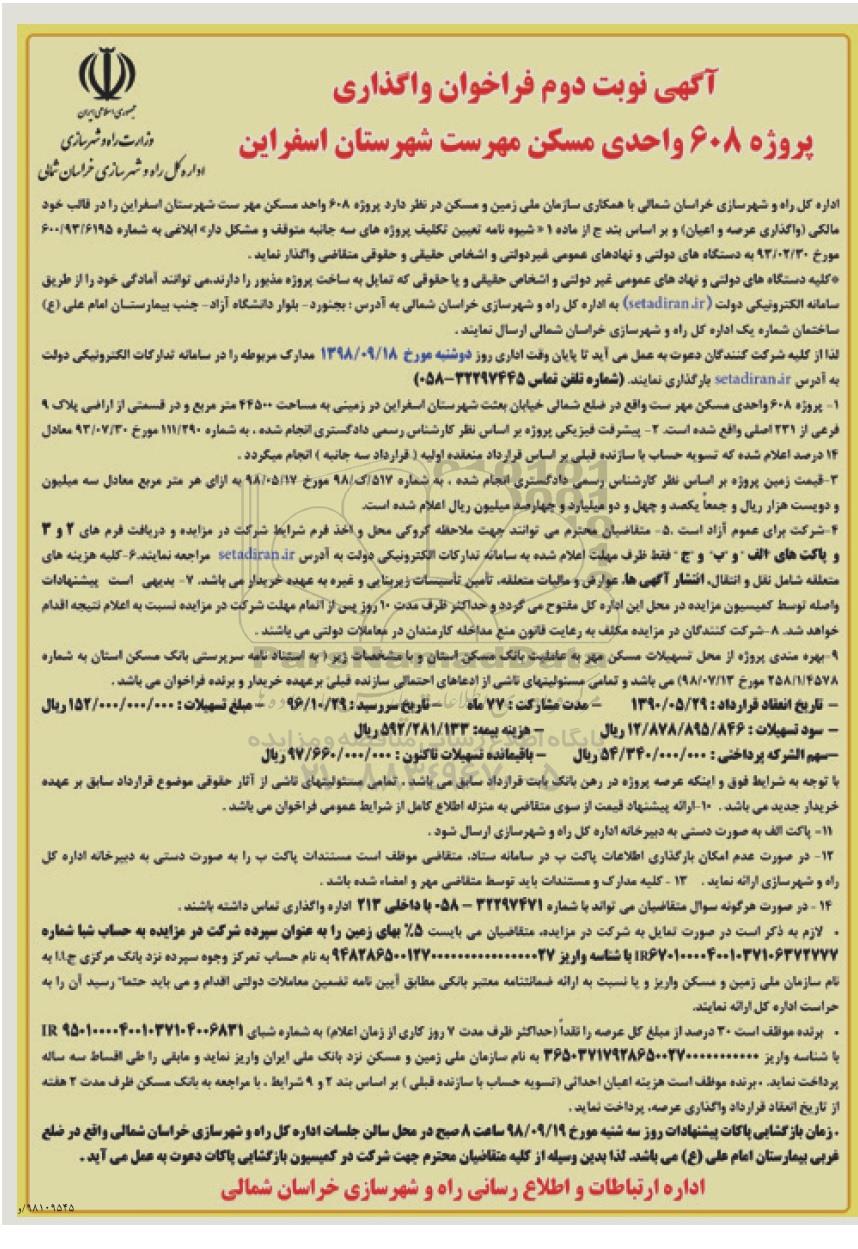 جمهوری اسلامی ایران
وزارت راه و شهرسازی
اداره کل راه و شهرسازی خراسان شمالی
آگهی نوبت دوم فراخوان واگذاری
پروژه ۶۰۸ واحدی مسکن مهرست شهرستان اسفراین
اداره کل راه و شهرسازی خراسان شمالی با همکاری سازمان ملی زمین و مسکن در نظر دارد پروژه ۶۰۸ واحد مسکن مهر ست شهرستان اسفراین را در قالب خود
مالکی (واگذاری عرصه و اعیان) و بر اساس بند ج از ماده ۱ « شیوه نامه تعیین تکلیف پروژه های سه جانبه متوقف و مشکل دار» ابلاغی به شماره ۶۰۰/۹۳/۶۱۹۵
مورخ ۹۳/۰۲/۳۰ به دستگاه های دولتی و نهادهای عمومی غیردولتی و اشخاص حقیقی و حقوقی متقاضی واگذار نماید .
*کلیه دستگاه های دولتی و نهاد های عمومی غیر دولتی و اشخاص حقیقی و یا حقوقی که تمایل به ساخت پروژه مذبور را دارند،می توانند آمادگی خود را از طریق
سامانه الکترونیکی دولت (setadiran.ir) به اداره کل راه و شهرسازی خراسان شمالی به آدرس : بجنورد- بلوار دانشگاه آزاد- جنب بیمارستان امام علی (ع)
ساختمان شماره یک اداره کل راه و شهرسازی خراسان شمالی ارسال نمایند .
لذا از کلیه شرکت کنندگان دعوت به عمل می آید تا پایان وقت اداری روز دوشنبه مورخ ۱۳۹۸/۰۹/۱۸ مدارک مربوطه را در سامانه تدارکات الکترونیکی دولت
به آدرس setadiran.ir بارگذاری نمایند. (شماره تلفن تماس ۳۲۲۹۷۴۴۵-۰۵۸)
۱- پروژه ۶۰۸ واحدی مسکن مهر ست واقع در ضلع شمالی خیابان بعثت شهرستان اسفراین در زمینی به مساحت ۴۴۵۰۰ متر مربع و در قسمتی از اراضی پلاک ۹
فرعی از ۲۳۱ اصلی واقع شده است. ۲- پیشرفت فیزیکی پروژه بر اساس نظر کارشناس رسمی دادگستری انجام شده ، به شماره ۱۱۱/۲۹۰ مورخ ۹۳/۰۷/۳۰ معادل
۱۴ درصد اعلام شده که تسویه حساب با سازنده قبلی بر اساس قرارداد منعقده اولیه ( قرارداد سه جانبه ) انجام میگردد .
۳-قیمت زمین پروژه بر اساس نظر کارشناس رسمی دادگستری انجام شده ، به شماره ۵۱۷/ک/۹۸ مورخ ۹۸/۰۵/۱۷ به ازای هر متر مربع معادل سه میلیون
و دویست هزار ریال و جمعاً یکصد و چهل و دو میلیارد و چهارصد میلیون ریال اعلام شده است.
۴-شرکت برای عموم آزاد است .۵- متقاضیان محترم می توانند جهت ملاحظه کروکی محل و اخذ فرم شرایط شرکت در مزایده و دریافت فرم های ۲ و ۳
و پاکت های "الف" و "ب" و "ج" فقط ظرف مهلت اعلام شده به سامانه تدارکات الکترونیکی دولت به آدرس setadiran.ir مراجعه نمایند.۶-کلیه هزینه های
متعلقه شامل نقل و انتقال، انتشار آگهی ها، عوارض و مالیات متعلقه، تأمین تأسیسات زیربنایی و غیره به عهده خریدار می باشد. ۷- بدیهی است پیشنهادات
واصله توسط کمیسیون مزایده در محل این اداره کل مفتوح می گردد و حداکثر ظرف مدت ۱۰ روز پس از اتمام مهلت شرکت در مزایده نسبت به اعلام نتیجه اقدام
خواهد شد. ۸-شرکت کنندگان در مزایده مکلف به رعایت قانون منع مداخله کارمندان در معاملات دولتی می باشند .
۹-بهره مندی پروژه از محل تسهیلات مسکن مهر به عاملیت بانک مسکن استان و با مشخصات زیر ( به استناد نامه سرپرستی بانک مسکن استان به شماره
۲۵۸/۱/۴۵۷۸ مورخ ۹۸/۰۷/۱۳) می باشد و تمامی مسئولیتهای ناشی از ادعاهای احتمالی سازنده قبلی برعهده خریدار و برنده فراخوان می باشد .
- تاریخ انعقاد قرارداد : ۱۳۹۰/۰۵/۲۹ - مدت مشارکت : ۷۷ ماه - تاریخ سررسید : ۹۶/۱۰/۲۹ - مبلغ تسهیلات : ۱۵۲/۰۰۰/۰۰۰/۰۰۰ ریال
- سود تسهیلات : ۱۲/۸۷۸/۸۹۵/۸۴۶ ریال - هزینه بیمه: ۵۹۲/۲۸۱/۱۳۳ ریال
-سهم الشرکه پرداختی : ۵۴/۳۴۰/۰۰۰/۰۰۰ ریال - باقیمانده تسهیلات تاکنون : ۹۷/۶۶۰/۰۰۰/۰۰۰ ریال
با توجه به شرایط فوق و اینکه عرصه پروژه در رهن بانک بابت قرارداد سابق می باشد . تمامی مسئولیتهای ناشی از آثار حقوقی موضوع قرارداد سابق بر عهده
خریدار جدید می باشد . ۱۰-ارائه پیشنهاد قیمت از سوی متقاضی به منزله اطلاع کامل از شرایط عمومی فراخوان می باشد .
۱۱- پاکت الف به صورت دستی به دبیرخانه اداره کل راه و شهرسازی ارسال شود .
۱۲- در صورت عدم امکان بارگذاری اطلاعات پاکت ب در سامانه ستاد، متقاضی موظف است مستندات پاکت ب را به صورت دستی به دبیرخانه اداره کل
راه و شهرسازی ارائه نماید . ۱۳ - کلیه مدارک و مستندات باید توسط متقاضی مهر و امضاء شده باشد .
۱۴ - در صورت هرگونه سوال متقاضیان می تواند با شماره ۳۲۲۹۷۴۷۱ - ۰۵۸ با داخلی ۲۱۳ اداره واگذاری تماس داشته باشند .
• لازم به ذکر است در صورت تمایل به شرکت در مزایده، متقاضیان می بایست ۵٪ بهای زمین را به عنوان سپرده شرکت در مزایده به حساب شبا شماره
با شناسه واریز به نام حساب تمرکز وجوه سپرده نزد بانک مرکزی ج.ا.ا به
نام سازمان ملی زمین و مسکن واریز و یا نسبت به ارائه ضمانتنامه معتبر بانکی مطابق آیین نامه تضمین معاملات دولتی اقدام و می باید حتما" رسید آن را به
حراست اداره کل ارائه نمایند.
• برنده موظف است ۳۰ درصد از مبلغ کل عرصه را نقداً (حداکثر ظرف مدت ۷ روز کاری از زمان اعلام) به شماره شبای IR ۹۵۰۱۰۰۰۰۴۰۰۱۰۳۷۱۰۴۰۰۶۸۳۱
با شناسه واریز به نام سازمان ملی زمین و مسکن نزد بانک ملی ایران واریز نماید و مابقی را طی اقساط سه ساله
پرداخت نماید. •برنده موظف است هزینه اعیان احداثی (تسویه حساب با سازنده قبلی ) بر اساس بند ۲ و ۹ شرایط ، با مراجعه به بانک مسکن ظرف مدت ۲ هفته
از تاریخ انعقاد قرارداد واگذاری عرصه، پرداخت نماید .
• زمان بازگشایی پاکات پیشنهادات روز سه شنبه مورخ ۹۸/۰۹/۱۹ ساعت ۸ صبح در محل سالن جلسات اداره کل راه و شهرسازی خراسان شمالی واقع در ضلع
غربی بیمارستان امام علی (ع) می باشد. لذا بدین وسیله از کلیه متقاضیان محترم جهت شرکت در کمیسیون بازگشایی پاکات دعوت به عمل می آید .
اداره ارتباطات و اطلاع رسانی راه و شهرسازی خراسان شمالی
۹۸۱۰۹۵۴۵/و